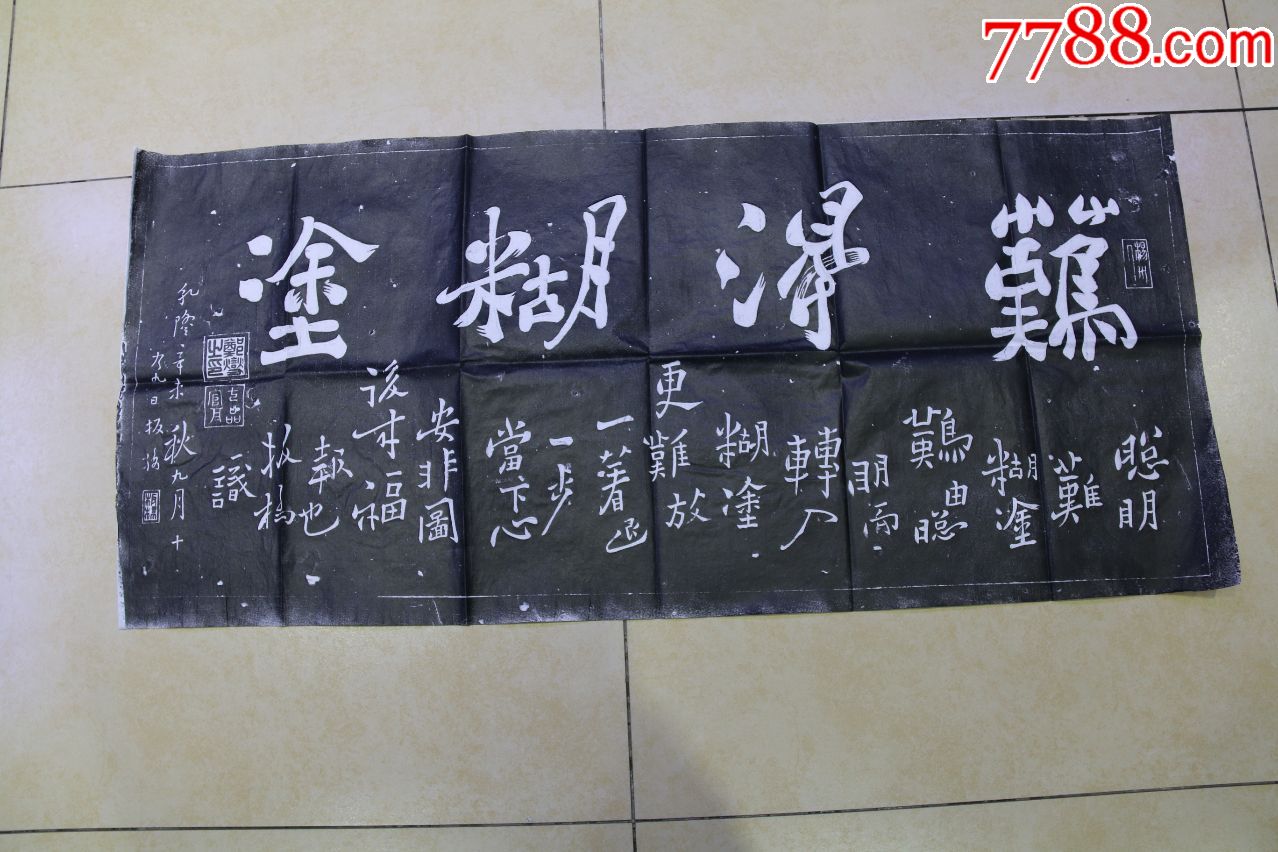 7788.com
難得糊塗
聰明
難
糊塗
難由聰
明而
轉入
糊塗
更難放
一著退
一步
當下心
安非圖
後來福
報也
板橋
識
鄭燮之印
七品官耳
乾隆辛未秋九月十
九日板橋